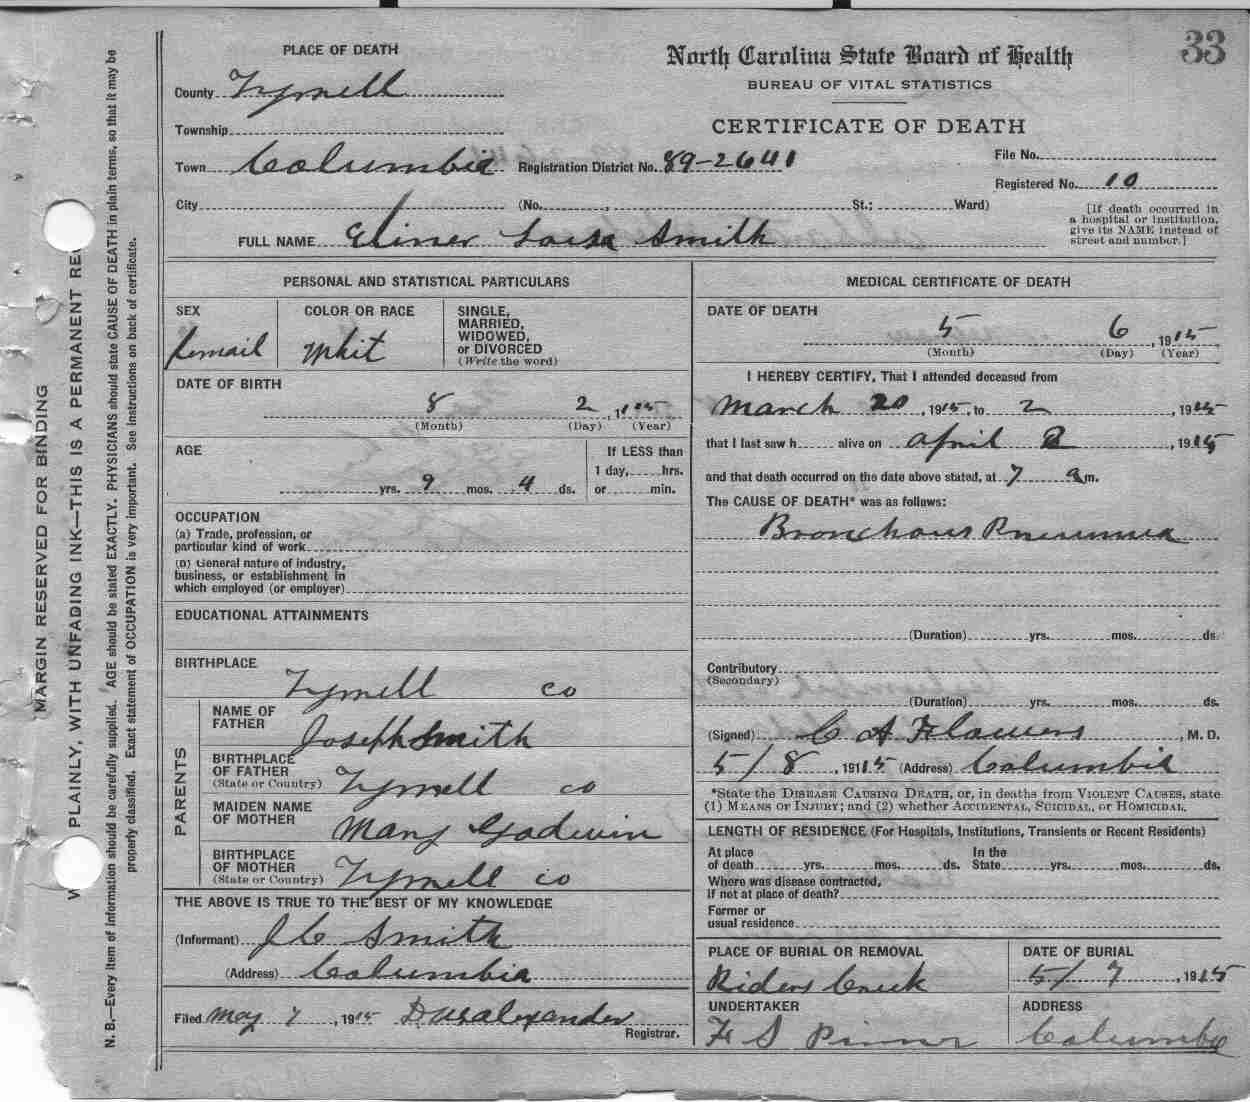 33
PLACE OF DEATH
County Tyrrell
Township
Town Columbia Registration District No. 89-2641
City (No. , St.; Ward)
FULL NAME Eliner Loisa Smith
North Carolina State Board of Health
BUREAU OF VITAL STATISTICS
CERTIFICATE OF DEATH
File No.
Registered No. 10
[If death occurred in
a hospital or institution,
give its NAME instead of
street and number.]
MARGIN RESERVED FOR BINDING
PLAINLY, WITH UNFADING INK—THIS IS A PERMANENT RE
N. B.—Every item of information should be carefully supplied. AGE should be stated EXACTLY. PHYSICIANS should state CAUSE OF DEATH in plain terms, so that it may be
properly classified. Exact statement of OCCUPATION is very important. See instructions on back of certificate.
PERSONAL AND STATISTICAL PARTICULARS
SEX
femail
COLOR OR RACE
whit
SINGLE,
MARRIED,
WIDOWED,
or DIVORCED
(Write the word)
DATE OF BIRTH
8 2 , 1
(Month) (Day) (Year)
AGE
yrs. 9 mos. 4 ds.
If LESS than
1 day, hrs.
or min.
OCCUPATION
(a) Trade, profession, or
particular kind of work
(b) General nature of industry,
business, or establishment in
which employed (or employer)
EDUCATIONAL ATTAINMENTS
BIRTHPLACE
Tyrrell co
PARENTS
NAME OF
FATHER
Joseph Smith
BIRTHPLACE
OF FATHER
(State or Country) Tyrrell co
MAIDEN NAME
OF MOTHER
Mary Godwin
BIRTHPLACE
OF MOTHER
(State or Country) Tyrrell co
THE ABOVE IS TRUE TO THE BEST OF MY KNOWLEDGE
(Informant) J C Smith
(Address) Columbia
Filed May 7 , 1915 Alexander
Registrar.
MEDICAL CERTIFICATE OF DEATH
DATE OF DEATH
5 6 , 1915
(Month) (Day) (Year)
I HEREBY CERTIFY, That I attended deceased from
March 20 , 1915, to 2 , 1915
that I last saw h alive on april 2 , 1915
and that death occurred on the date above stated, at 7 a m.
The CAUSE OF DEATH* was as follows:
(Duration) yrs. mos. ds.
Contributory
(Secondary)
(Duration) yrs. mos. ds.
(Signed) C A Flowers , M. D.
5/8 , 1915 (Address) Columbia
*State the DISEASE CAUSING DEATH, or, in deaths from VIOLENT CAUSES, state
(1) MEANS OF INJURY; and (2) whether ACCIDENTAL, SUICIDAL, OR HOMICIDAL.
LENGTH OF RESIDENCE (For Hospitals, Institutions, Transients or Recent Residents)
At place In the
of death yrs. mos. ds. State yrs. mos. ds.
Where was disease contracted,
if not at place of death?
Former or
usual residence
PLACE OF BURIAL OR REMOVAL
Riders Creek
DATE OF BURIAL
5/7 , 1915
UNDERTAKER
F S Pinner
ADDRESS
Columbia